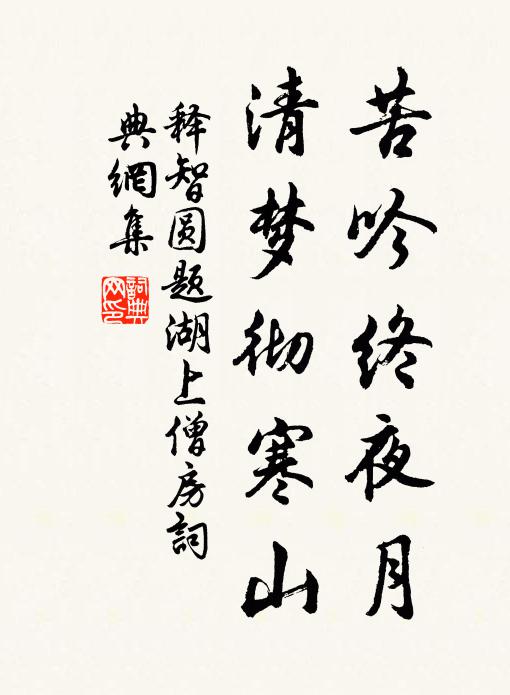 苦吟终夜月
清梦彻寒山
释智圆题湖上僧房詞
典網集
詞典
网印